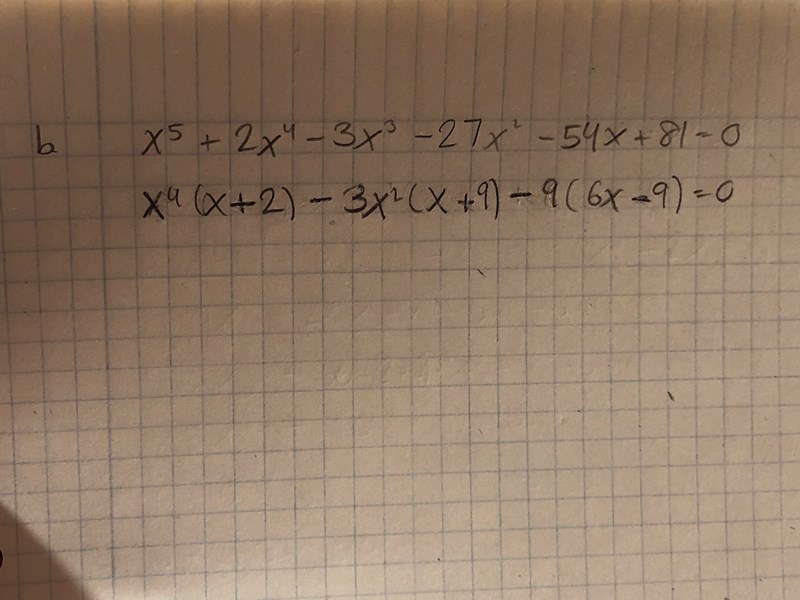 b x⁵ + 2x⁴ - 3x³ - 27x² - 54x + 81 = 0
x⁴ (x+2) - 3x² (x+9) - 9 (6x - 9) = 0